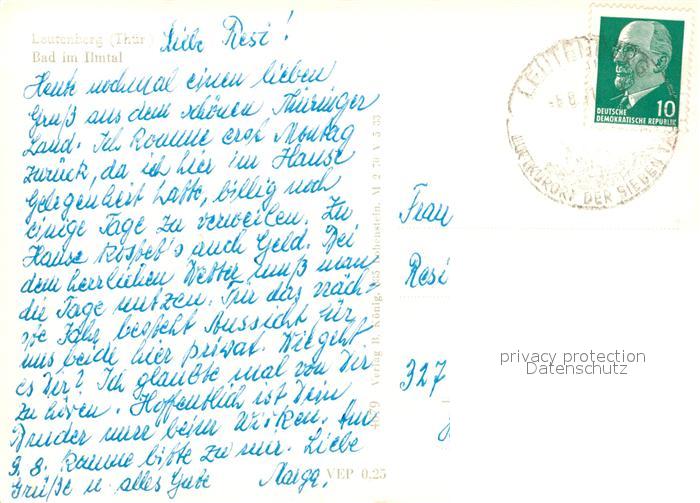 Leutenberg (Thür.)
Bad im Ilmtal
Liebe Resi!
Heute nochmal einen lieben
Gruß aus dem schönen Thüringer
Land. Ich komme erst Montag
zurück, da ich hier im Hause
Gelegenheit hatte, billig noch
einige Tage zu verweilen. Zu
Hause kostet's auch Geld. Bei
dem herrlichen Wetter muß man
die Tage nutzen. Für das näch-
ste Jahr besteht Aussicht für
uns beide hier privat. Wie geht
es Dir? Ich glaubte mal von Dir
zu hören. Hoffentlich ist Dein
Bruder nur beim Wirken. Am
9. 8. komme bitte zu mir. Liebe
Grüße u. alles Gute Marga.
VEP 0,25
Verlag B. König, Hohenstein. M 2 70 V 5 33
DEUTSCHE
DEMOKRATISCHE REPUBLIK
10
LUFTKURORT DER SIEBEN
Frau
Resi
327
privacy protection
Datenschutz